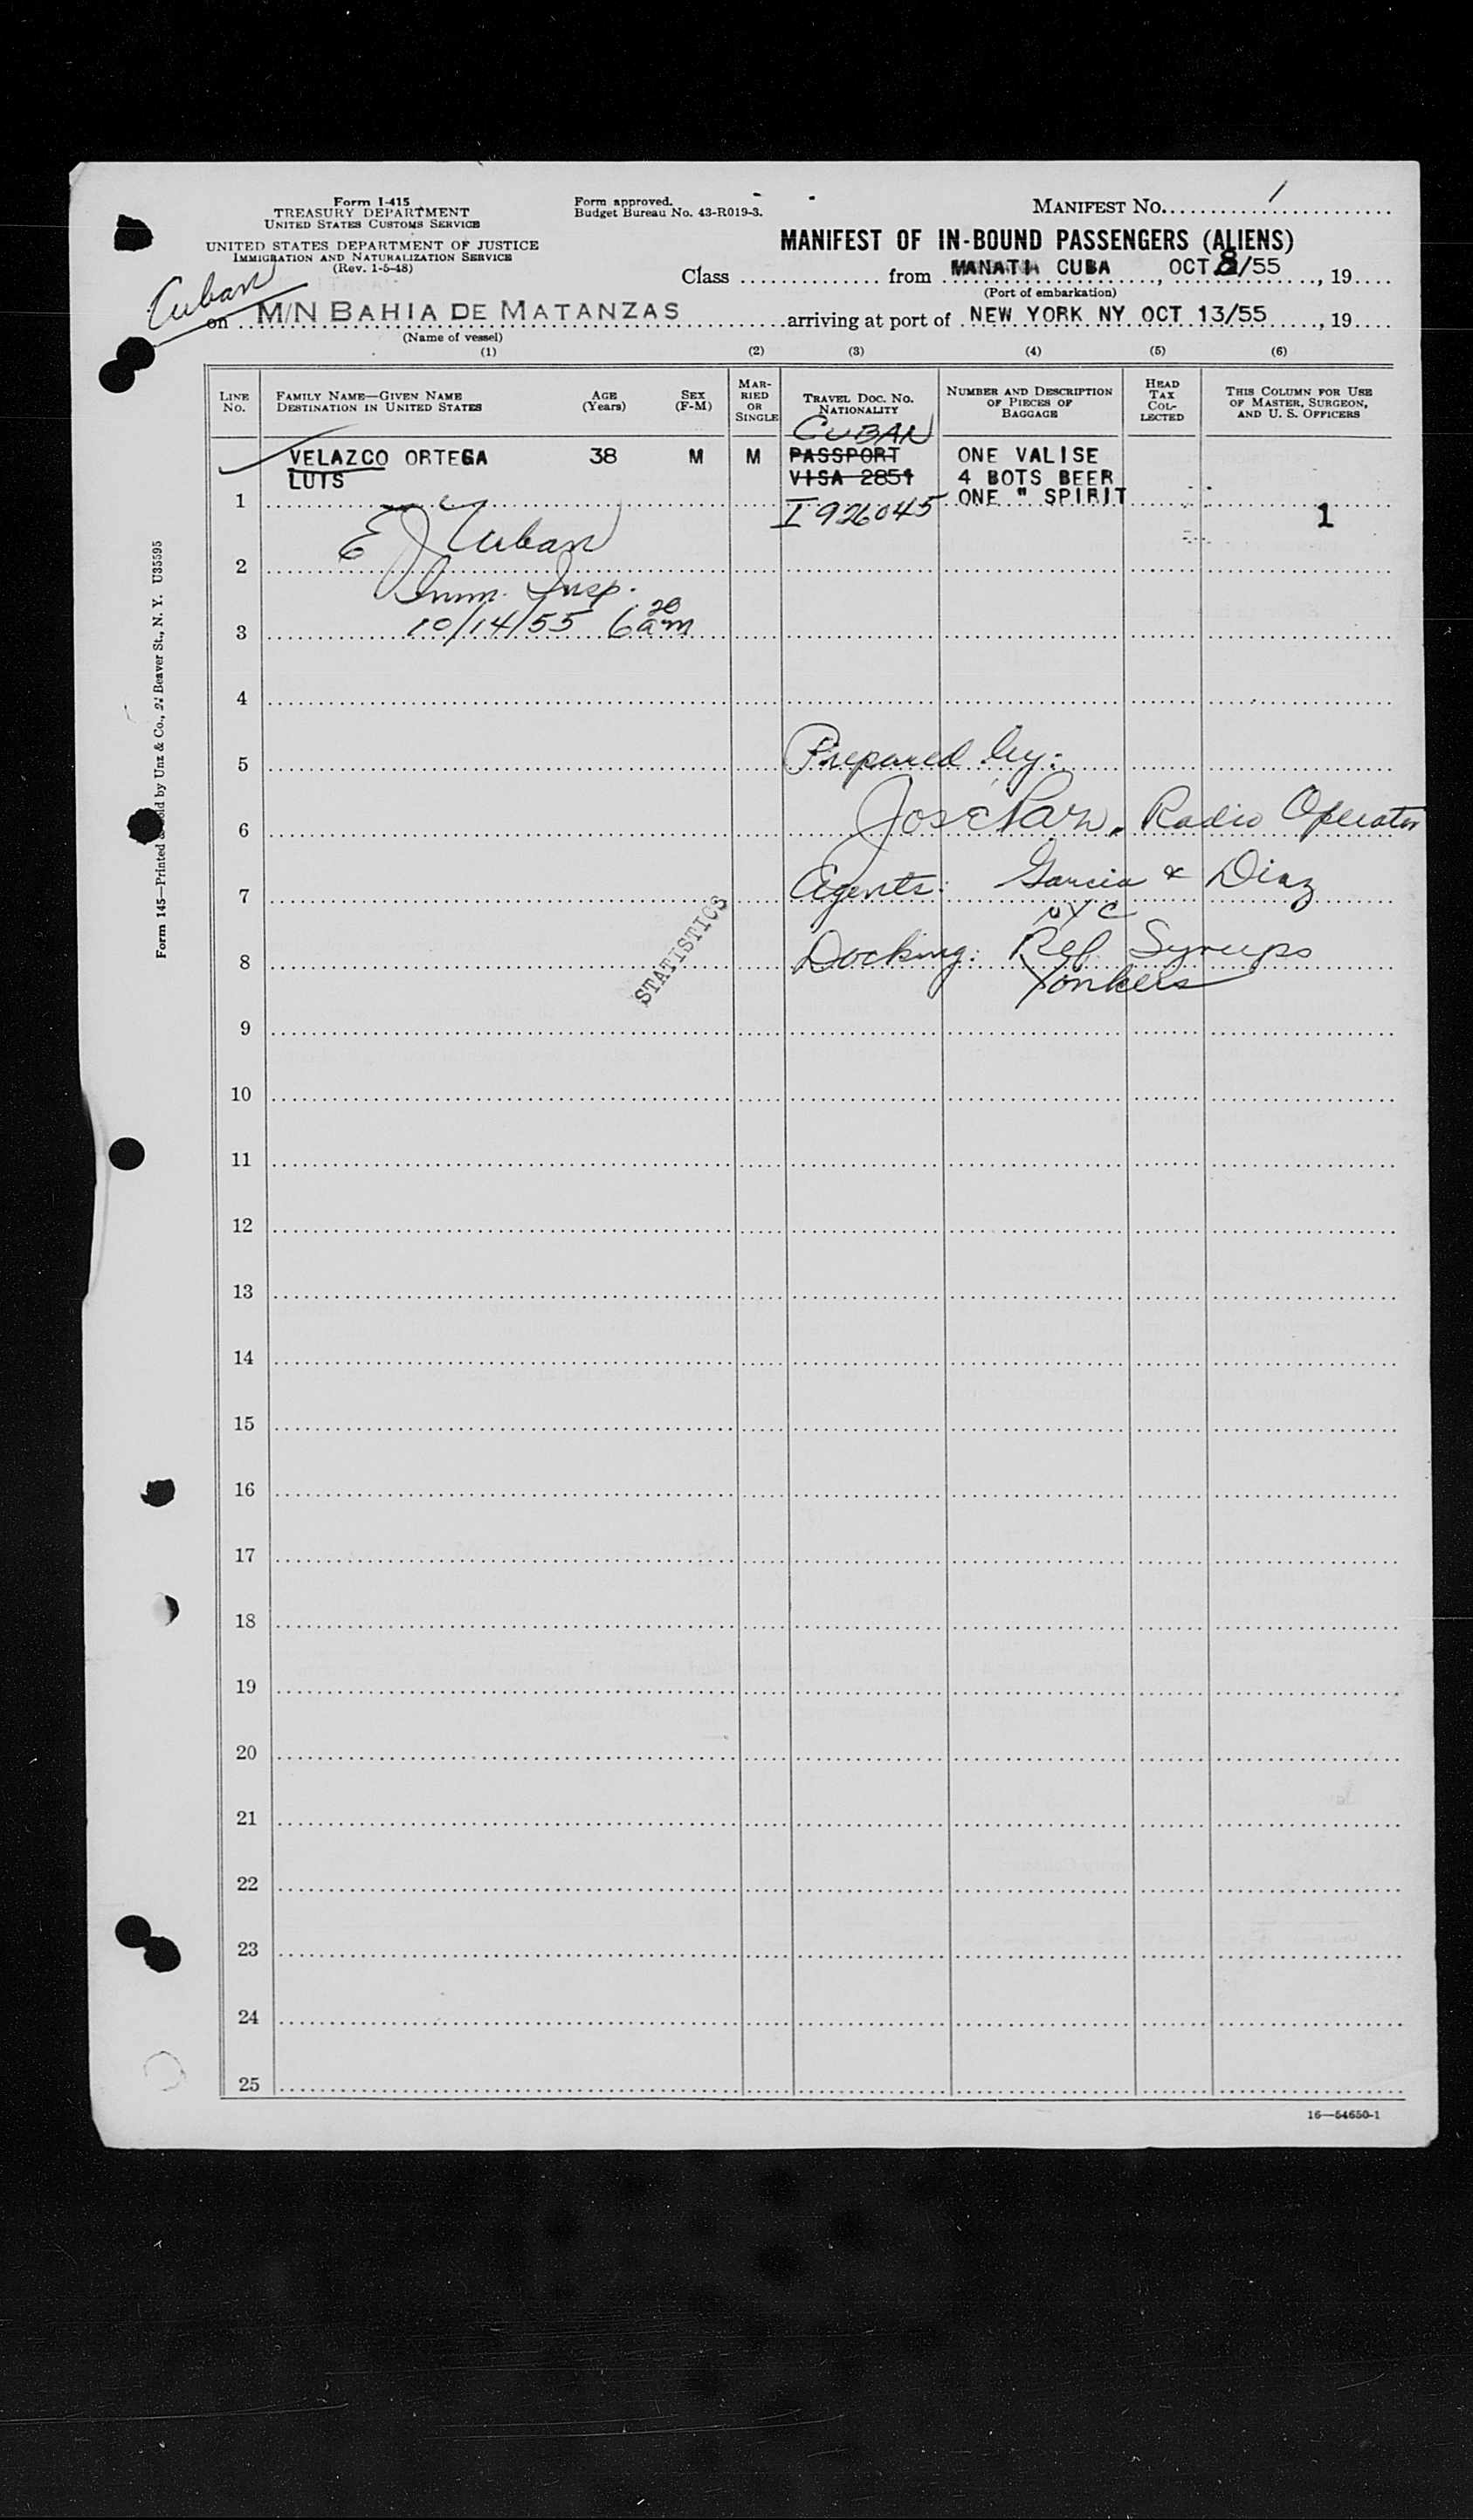 Form I-415
TREASURY DEPARTMENT
UNITED STATES CUSTOMS SERVICE
UNITED STATES DEPARTMENT OF JUSTICE
IMMIGRATION AND NATURALIZATION SERVICE
(Rev. 1-5-48)
Form approved.
Budget Bureau No. 43-R019-3.
MANIFEST No. 1
MANIFEST OF IN-BOUND PASSENGERS (ALIENS)
Class from MANATI CUBA, OCT 8/55, 19
(Port of embarkation)
Cuban
on M/N BAHIA DE MATANZAS arriving at port of NEW YORK NY OCT 13/55, 19
(Name of vessel)
(1) (2) (3) (4) (5) (6)
LINE No. FAMILY NAME—GIVEN NAME DESTINATION IN UNITED STATES AGE (Years) SEX (F-M) MARRIED OR SINGLE TRAVEL DOC. NO. NATIONALITY NUMBER AND DESCRIPTION OF PIECES OF BAGGAGE HEAD TAX COLLECTED THIS COLUMN FOR USE OF MASTER, SURGEON, AND U. S. OFFICERS
CUBAN
VELAZCO ORTEGA 38 M M PASSPORT ONE VALISE
LUTS VISA 2851 4 BOTS BEER
1 I 926045 ONE " SPIRIT 1
E J Urban
2
Imm. Insp.
3 10/14/55 6 20 am
4
5 Prepared by:
6 Jose Radio Operator
7 Agents: Garcia & Diaz
NYC
8 Docking: Ref. Syrups
Yonkers
STATISTICS
9
10
11
12
13
14
15
16
17
18
19
20
21
22
23
24
25
16—54650-1
Form 145—Printed & Sold by Unz & Co., 24 Beaver St., N. Y. U35595